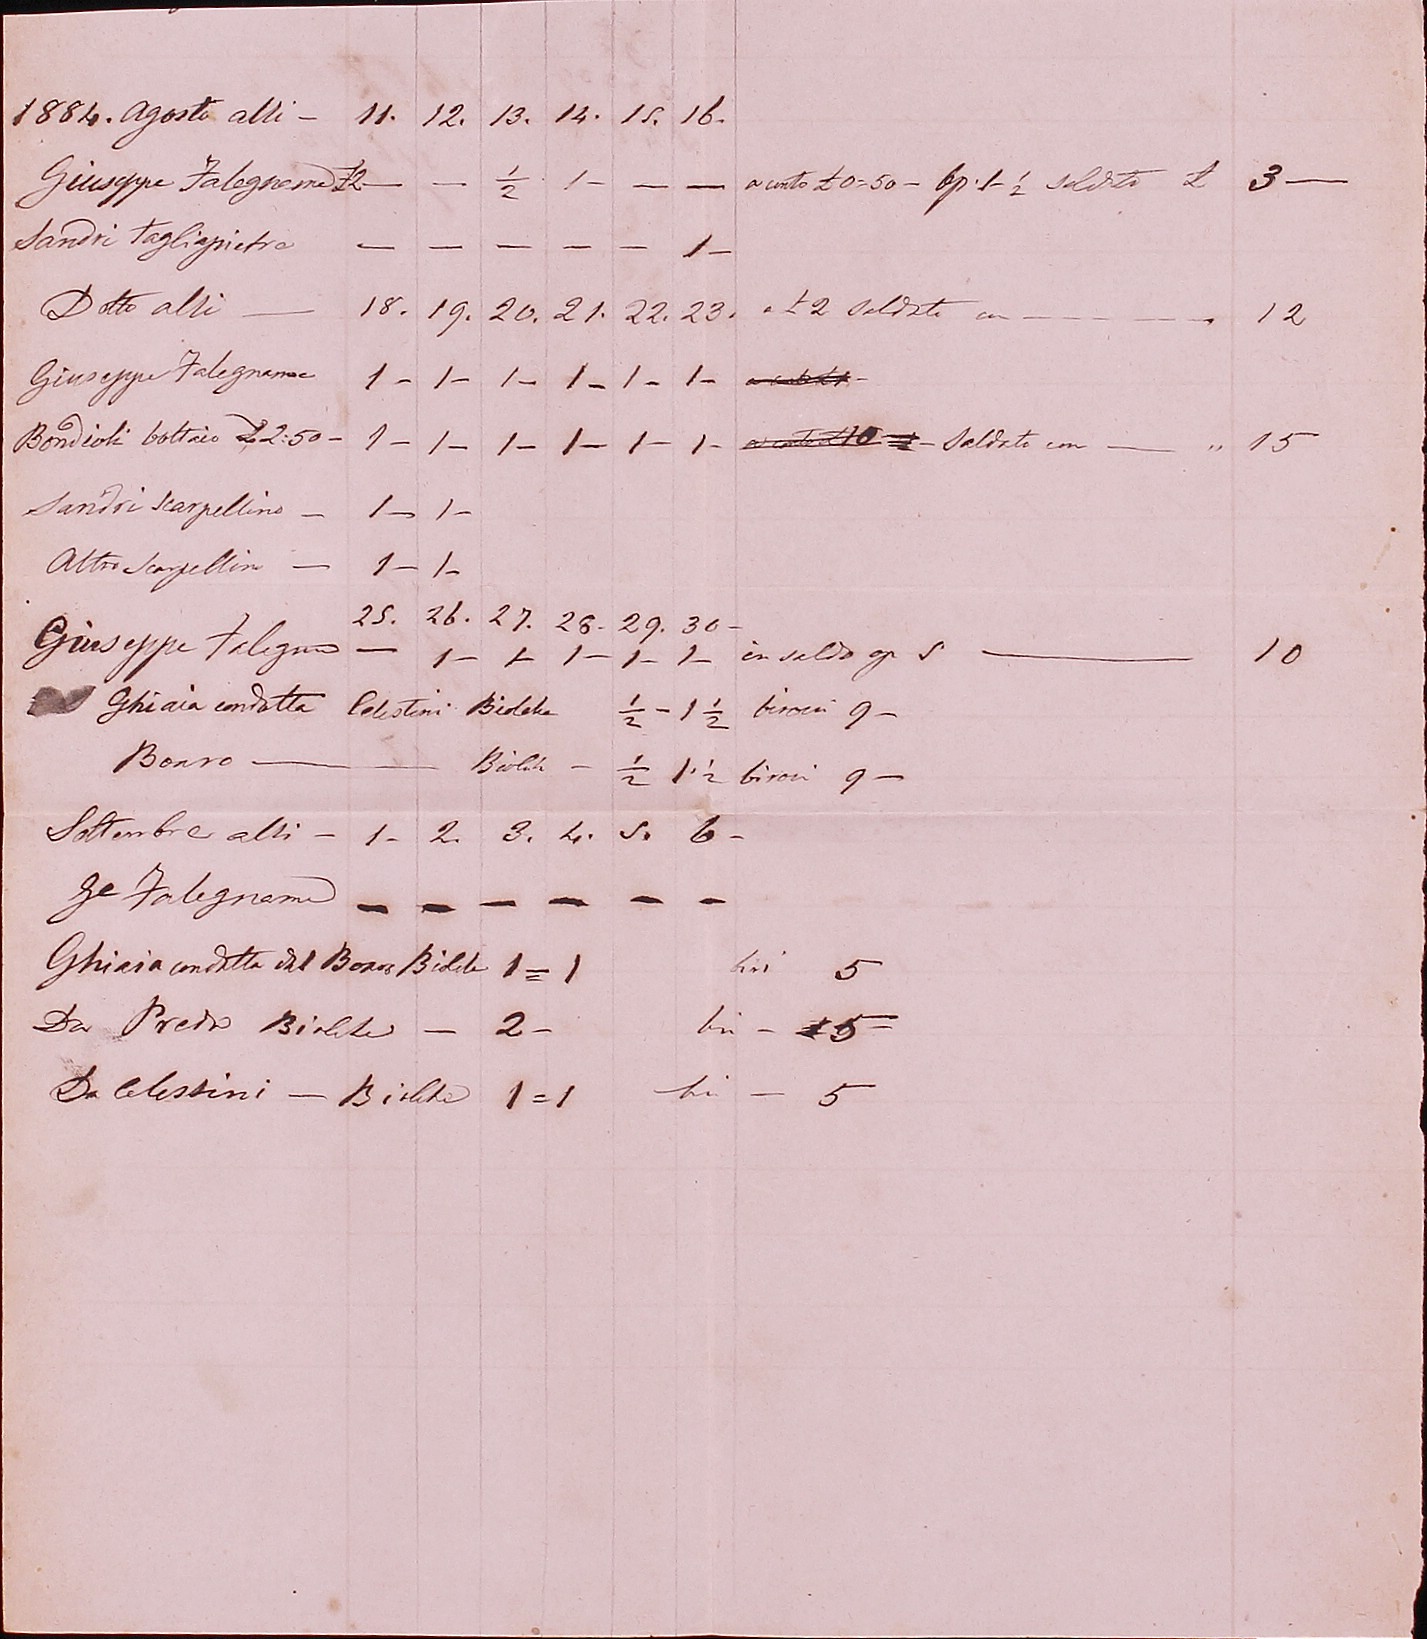 1884. Agosto alli – 11. 12. 13. 14. 15. 16.
Giuseppe Falegname £2 — — ½ 1 – — — a conto £ 0=50 – op. 1 – ½ saldato £ 3 —
Sandri tagliapietra — — — — — 1 –
Dotto alli — 18. 19. 20. 21. 22. 23. a £ 2 saldato con — — — 12
Giuseppe Falegname 1 – 1 – 1 – 1 – 1 – 1 –
Bondioli bottaio £ 2:50 – 1 – 1 – 1 – 1 – 1 – 1 – a conto £ 10 – saldato con — " 15
Sandri scarpellino – 1 – 1 –
Altro scarpellino — 1 – 1 –
25. 26. 27. 28. 29. 30 –
Giuseppe Falegname — 1 – 1 – 1 – 1 – 1 – in saldo op 5 — 10
Ghiaia condotta Celestini Biolche ½ – 1 ½ birocci 9 –
Bonro — — Biolche – ½ 1 ½ birocci 9 –
Settembre alli – 1 – 2. 3. 4. 5. 6 –
Ge Falegname – – – – – –
Ghiaia condotta dal Biolche 1 = 1 biri 5
Da Preda Biolche – 2 – biri – 5 =
Da Celestini – Biolche 1 = 1 biri – 5